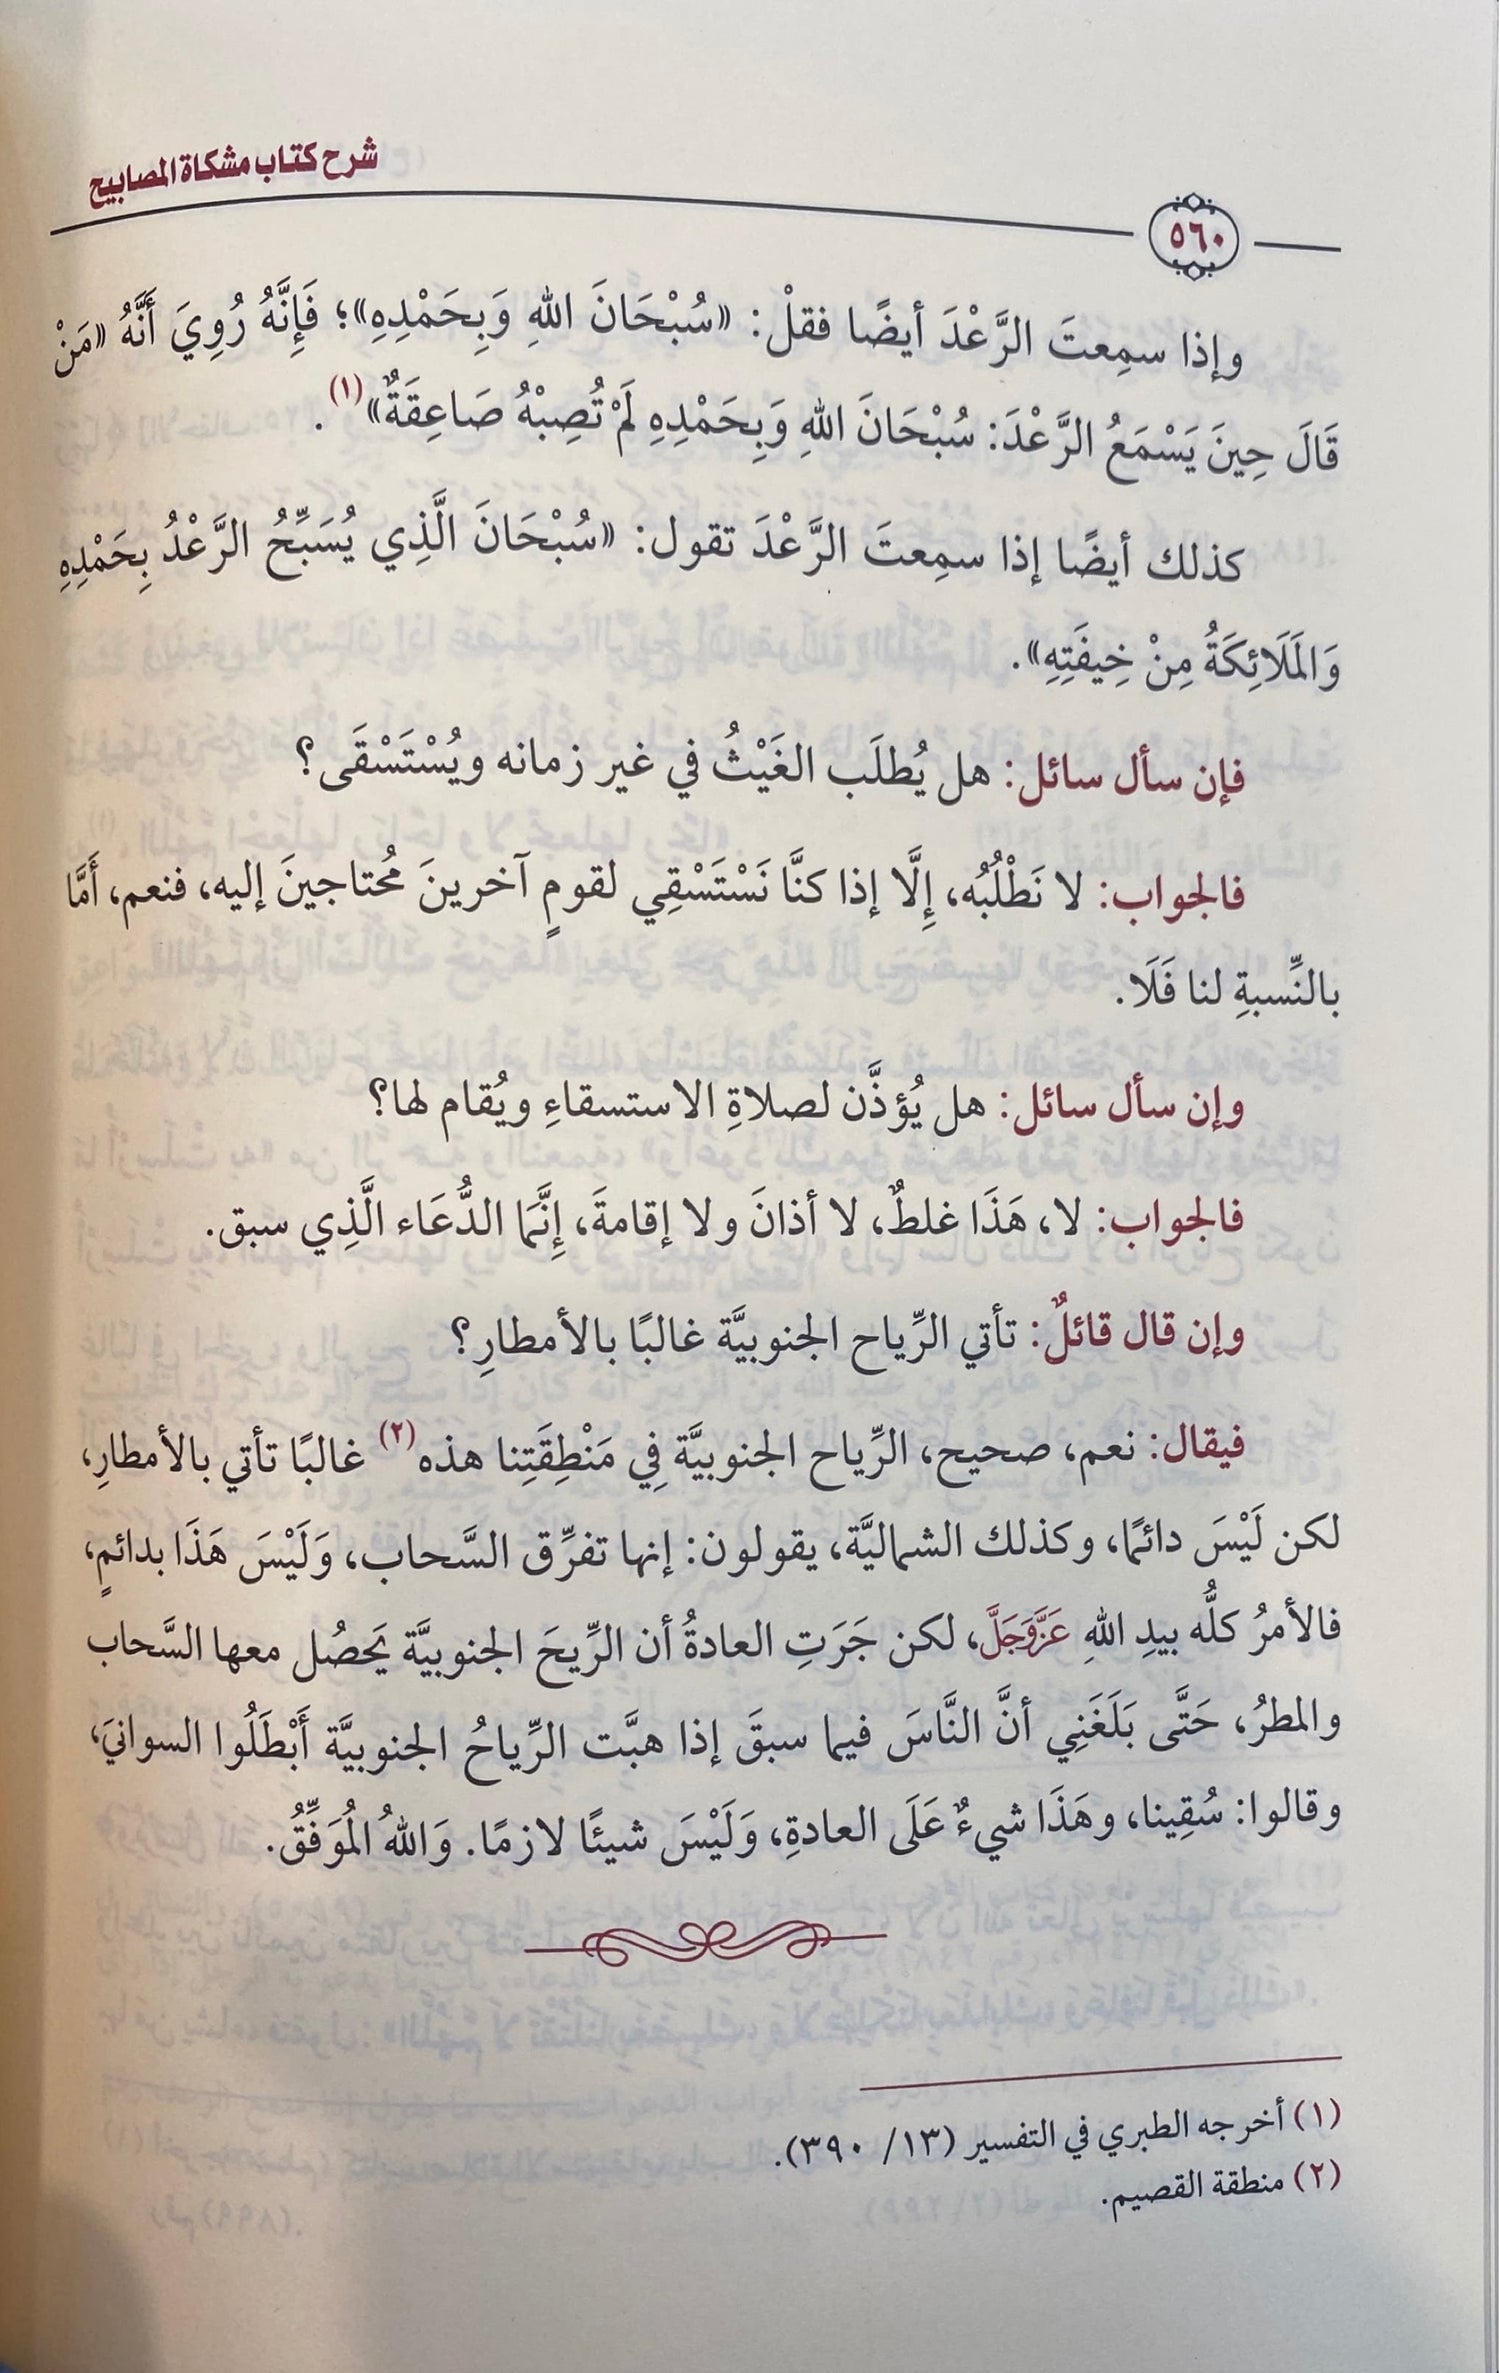 شرح كتاب مشكاة المصابيح
٥٦٠
وإذا سمِعتَ الرَّعْدَ أيضًا فقلْ: «سُبْحَانَ اللهِ وَبِحَمْدِهِ»؛ فَإِنَّهُ رُوِيَ أَنَّهُ «مَنْ
قَالَ حِينَ يَسْمَعُ الرَّعْدَ: سُبْحَانَ اللهِ وَبِحَمْدِهِ لَمْ تُصِبْهُ صَاعِقَةٌ»(١).
كذلك أيضًا إذا سمِعتَ الرَّعْدَ تقول: «سُبْحَانَ الَّذِي يُسَبِّحُ الرَّعْدُ بِحَمْدِهِ
وَالمَلَائِكَةُ مِنْ خِيفَتِهِ».
فإن سأل سائل: هل يُطلَب الغَيْثُ في غير زمانه ويُسْتَسْقَى؟
فالجواب: لا نَطْلُبُه، إِلَّا إذا كنَّا نَسْتَسْقِي لقومٍ آخرينَ مُحتاجينَ إليه، فنعم، أَمَّا
بالنِّسبةِ لنا فَلَا.
وإن سأل سائل: هل يُؤذَّن لصلاةِ الاستسقاءِ ويُقام لها؟
فالجواب: لا، هَذَا غلطٌ، لا أذانَ ولا إقامةَ، إِنَّمَا الدُّعَاء الَّذِي سبق.
وإن قال قائلٌ: تأتي الرِّياح الجنوبيَّة غالبًا بالأمطارِ؟
فيقال: نعم، صحيح، الرِّياح الجنوبيَّة فِي مَنْطِقَتِنا هذه(٢) غالبًا تأتي بالأمطارِ،
لكن لَيْسَ دائمًا، وكذلك الشماليَّة، يقولون: إنها تفرِّق السَّحاب، وَلَيْسَ هَذَا بدائمٍ،
فالأمرُ كلُّه بيدِ اللهِ عَزَّوَجَلَّ، لكن جَرَتِ العادةُ أن الرِّيحَ الجنوبيَّة يَحصُل معها السَّحاب
والمطرُ، حَتَّى بَلَغَنِي أنَّ النَّاسَ فيما سبقَ إذا هبَّت الرِّياحُ الجنوبيَّة أَبْطَلُوا السوانيَ،
وقالوا: سُقِينا، وهَذَا شيءٌ عَلَى العادةِ، وَلَيْسَ شيئًا لازمًا. وَاللهُ المُوَفِّقُ.
(١) أخرجه الطبري في التفسير (١٣/ ٣٩٠).
(٢) منطقة القصيم.